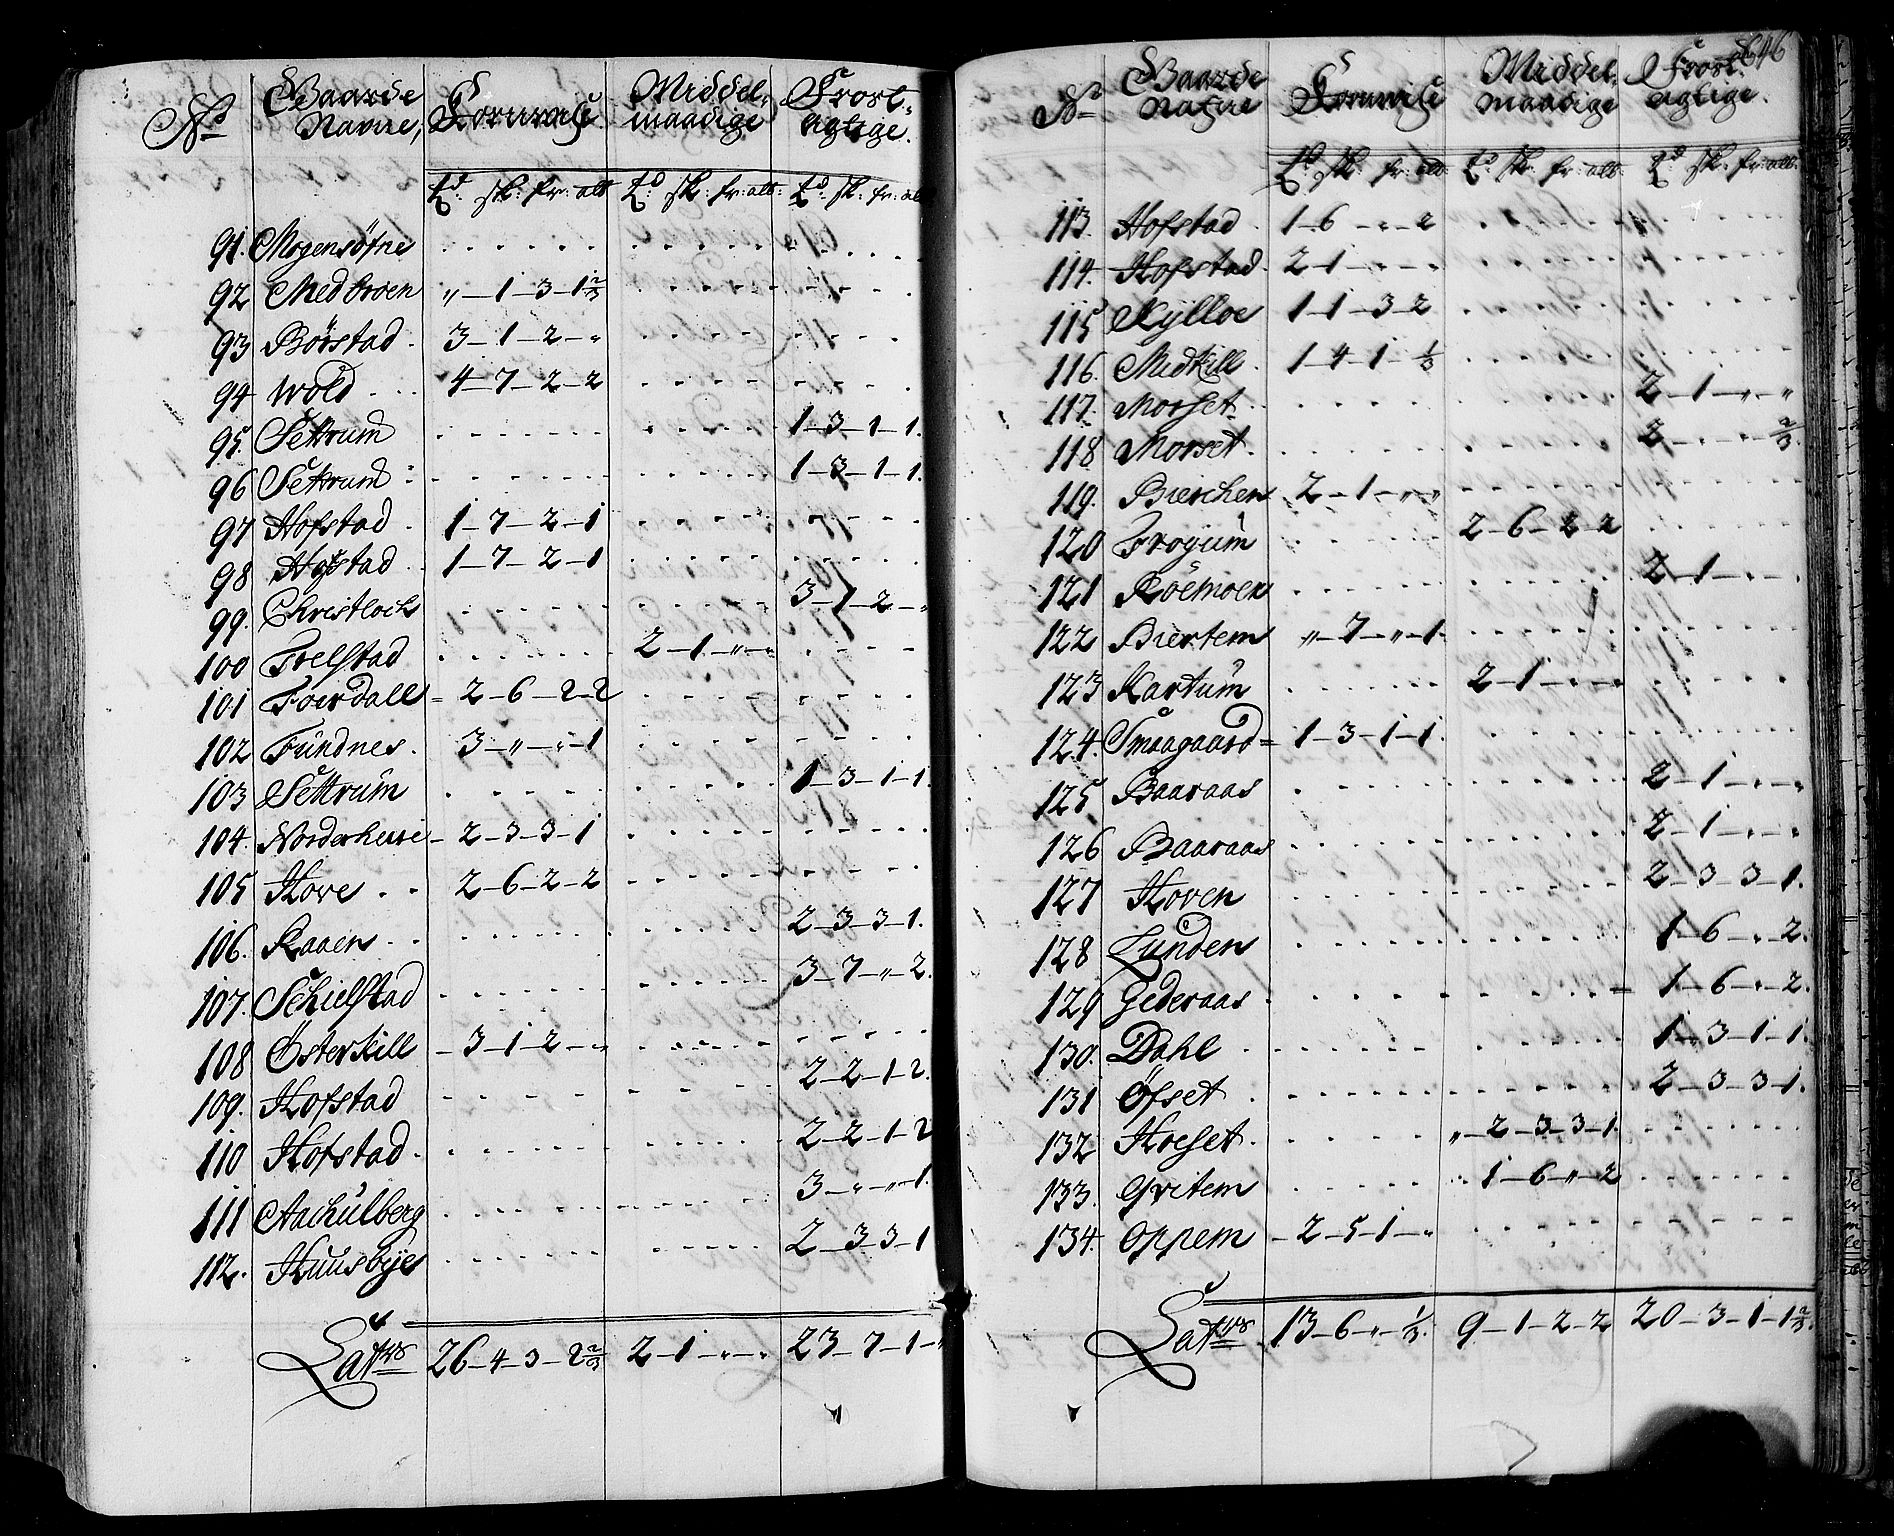 No Gaarde Navne, Kornvisse Middelmaadige Frostagtige.
td: sk: fr: alb td: sk: fr: alb: td: sk: fr: alb
91. Mogensöfne
92 Medtroen „ 1 3 1 2/3
93 Börstad 3 1 2 „
94 Wold 4 7 2 2
95. Settrum 1 3 1 1.
96 Settrum 1 3 1 1.
97 Hofstad 1 7 2 1
98 Hofstad 1 7 2 1
99. Christloch 3 7 2 „
100 Frelstad 2 1 „ „
101 Foerdall 2 6 2 2
102 Fundnes. 3 „ „ 1
103 Settrum 1 3 1 1.
104. Norderhuus 2 3 3 1
105 Hove 2 6 2 2
106. Raaen 2 3 3 1.
107. Schielstad 3 7 „ 2.
108 Österkill 3 1 2 „
109. Hofstad 2 2 1 2.
110 Hofstad 2 2 1 2
111 Aachulberg 3 „ „ 1.
112. Huusbye 2 3 3 1
Latus 26 4 3 2 2/3 2 1 „ „ 23 7 1 „
646
No Gaarde Nafne Kornvisse Middelmaadige Frostagtige.
td sk: fr: alb td: sk: fr: alb: td: sk: fr: alb:
113. Hofstad 1 6 „ 2
114. Hofstad 2 1 „ „
115 Kylloe 1 1 3 2
116. Midkill 1 4 1 1/3
117. Morset 2 1 „ „
118 Morset. 2 „ „ 2/3.
119. Bierchen 2 1 „ „
120 Frogum 2 6 2 2
121 Röemoen 2 1 „ „
122 Biertem „ 7 „ 1.
123 Kartum 2 1 „ „
124. Smaagaard 1 3 1 1.
125 Baaraas 2 1 „ „
126 Baaraas 2 1 „ „
127 Hoven 2 3 3 1.
128 Lunden 1 6 „ 2.
129 Gederaas 1 6 „ 2.
130. Dahl 1 3 1 1.
131 Öfset 2 3 3 1.
132 Hoeset. „ 2 3 3 1.
133. Gvitem 1 6 „ 2
134. Oppem 2 5 1 „
Latus 13 6 „ 1/3. 9 1 2 2 20 3 1 1 2/3.